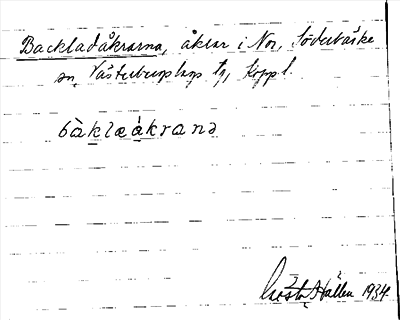 Backladåkrarna, åkrar i Nor, Söderbärke
sn, Västerbergslags tg, Koppl.
bàklaákranə
Gösta Hallén 1934.